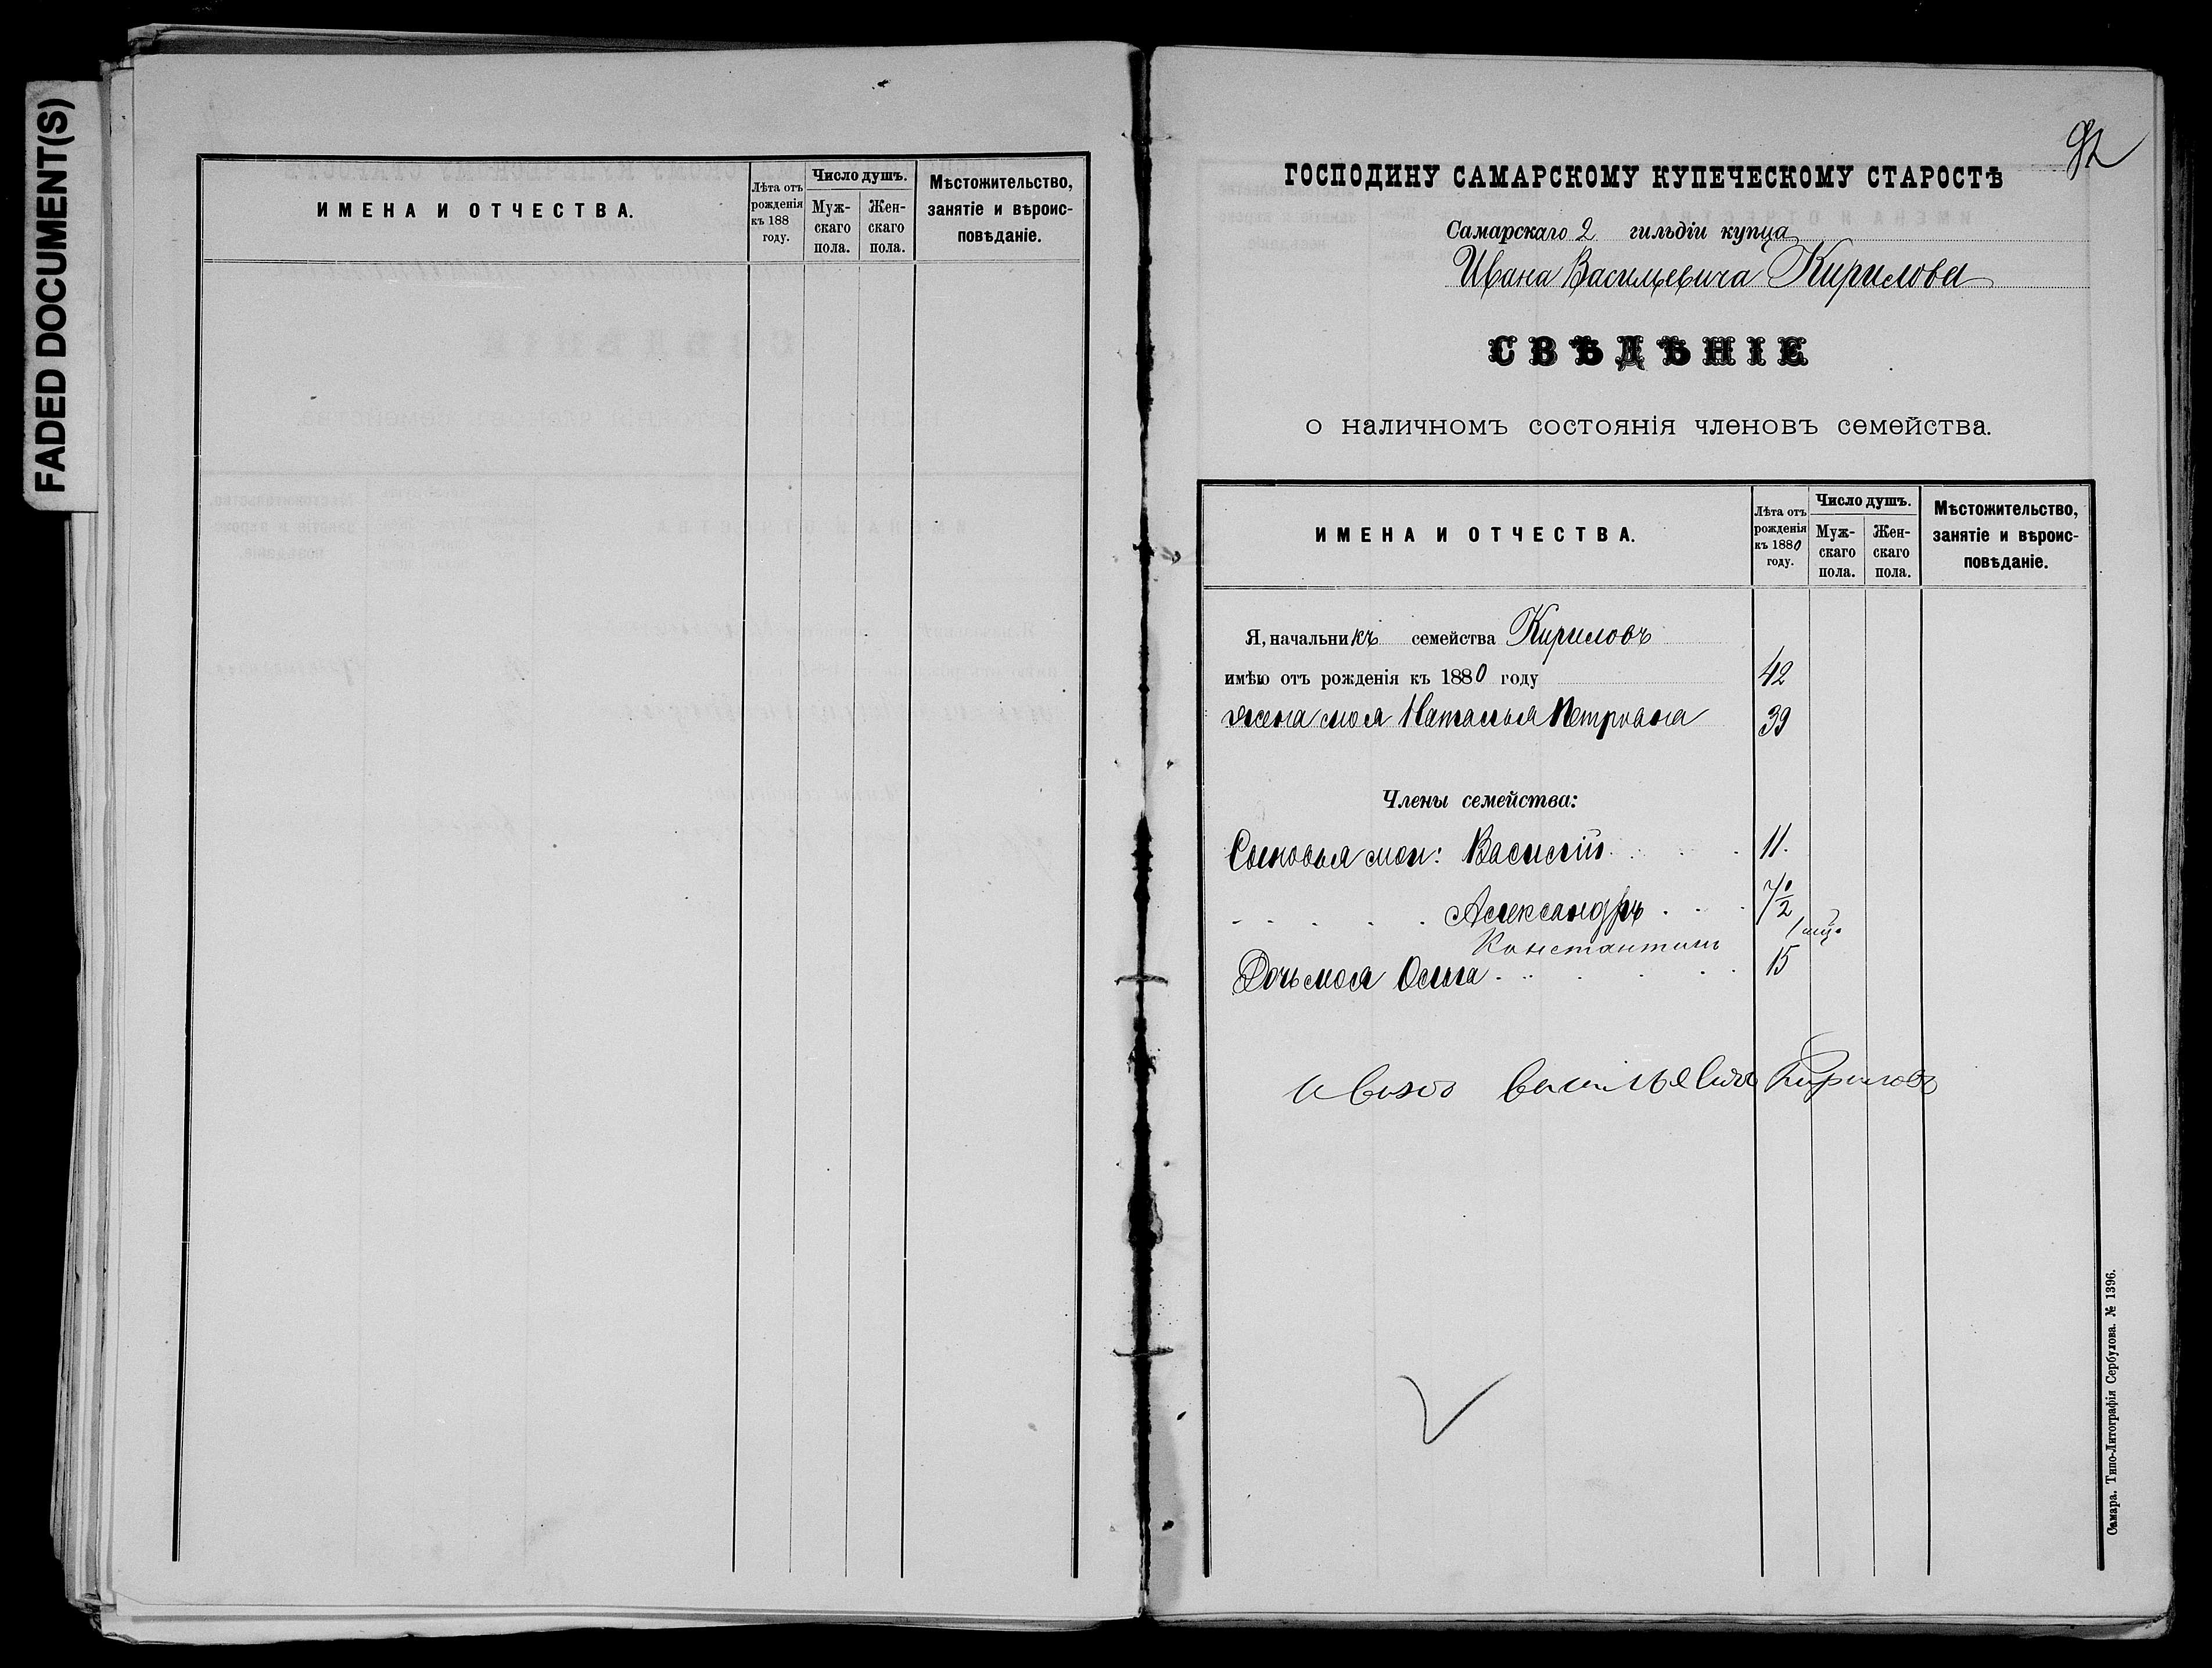 FADED DOCUMENT(S)
ИМЕНА И ОТЧЕСТВА.
Лѣта отъ рожденія къ 188 году.
Число душъ.
Муж-скаго пола.
Жен-скаго пола.
Мѣстожительство, занятіе и вѣроис-повѣданіе.
92
ГОСПОДИНУ САМАРСКОМУ КУПЕЧЕСКОМУ СТАРОСТѢ
Самарскаго 2 гильдіи купца
Ивана Васильевича Кирилова
СВѢДѢНІЕ
о наличномъ состоянія членовъ семейства.
ИМЕНА И ОТЧЕСТВА.
Лѣта отъ рожденія къ 1880 году.
Число душъ.
Муж-скаго пола.
Жен-скаго пола.
Мѣстожительство, занятіе и вѣроис-повѣданіе.
Я, начальникъ семейства Кириловъ
имѣю отъ рожденія къ 1880 году 42
жена моя Наталья Петровна 39
Члены семейства:
Сыновья мои: Василій 11.
Александръ 7 1/2
Константинъ 1
Дочь моя Ольга 15
Иванъ Васильевичъ Кириловъ
Самара. Типо-Литографія Сербулова. № 1396.